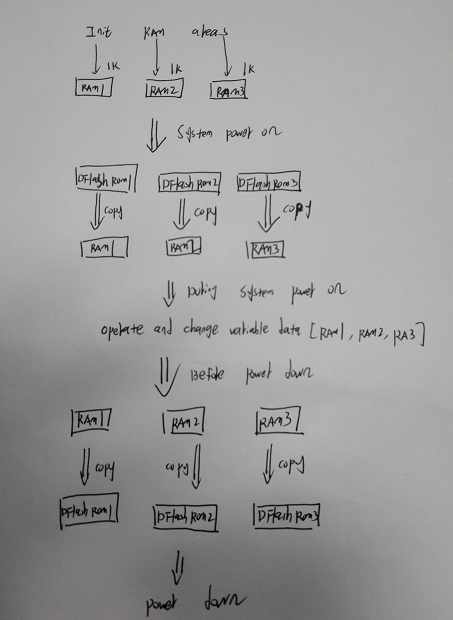 Init RAM areas
1K 1K 1K
RAM1 RAM2 RAM3
System power on
DFlash Rom1 DFlash Rom2 DFlash Rom3
copy copy copy
RAM1 RAM2 RAM3
During system power on
operate and change variable data [RAM1, RAM2, RA3]
Before power down
RAM1 RAM2 RAM3
copy copy copy
DFlash Rom1 DFlash Rom2 DFlash Rom3
power down